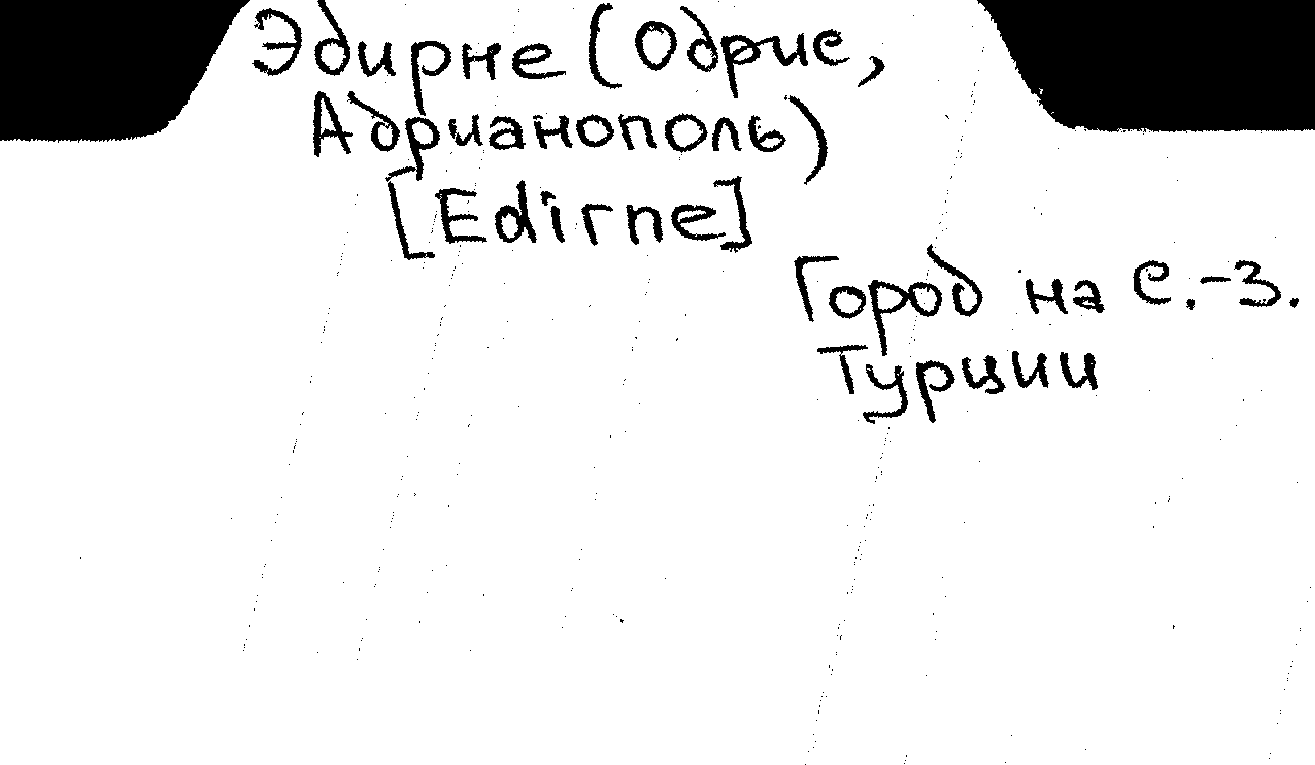 Эдирне (Одрис,
Адрианополь)
[Edirne]
Город на С.-З.
Турции